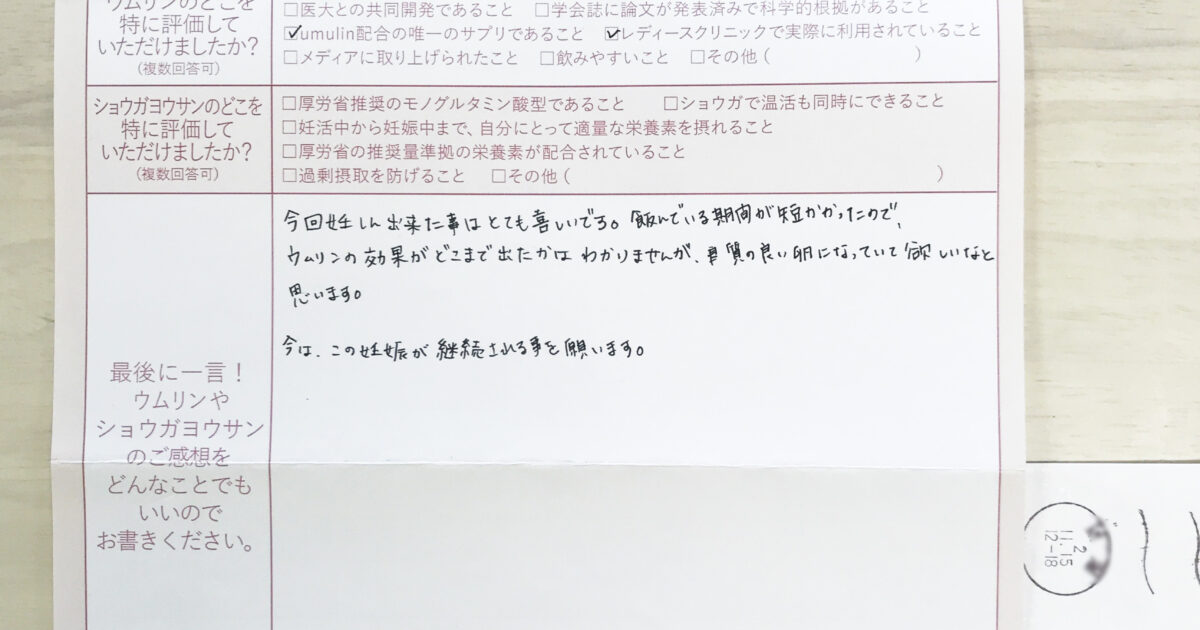 ウムリンのどこを
特に評価して
いただけましたか?
(複数回答可)
□医大との共同開発であること □学会誌に論文が発表済みで科学的根拠があること
☑umulin配合の唯一のサプリであること ☑レディースクリニックで実際に利用されていること
□メディアに取り上げられたこと □飲みやすいこと □その他( )
ショウガヨウサンのどこを
特に評価して
いただけましたか?
(複数回答可)
□厚労省推奨のモノグルタミン酸型であること □ショウガで温活も同時にできること
□妊活中から妊娠中まで、自分にとって適量な栄養素を摂れること
□厚労省の推奨量準拠の栄養素が配合されていること
□過剰摂取を防げること □その他( )
最後に一言!
ウムリンや
ショウガヨウサン
のご感想を
どんなことでも
いいので
お書きください。
今回妊しん出来た事はとても喜いです。飲んでいる期間が短かかったので、
ウムリンの効果がどこまで出たかはわかりませんが、質の良い卵になっていて欲しいなと
思います。
今は、この妊娠が継続される事を願います。
2
11.15
12-18